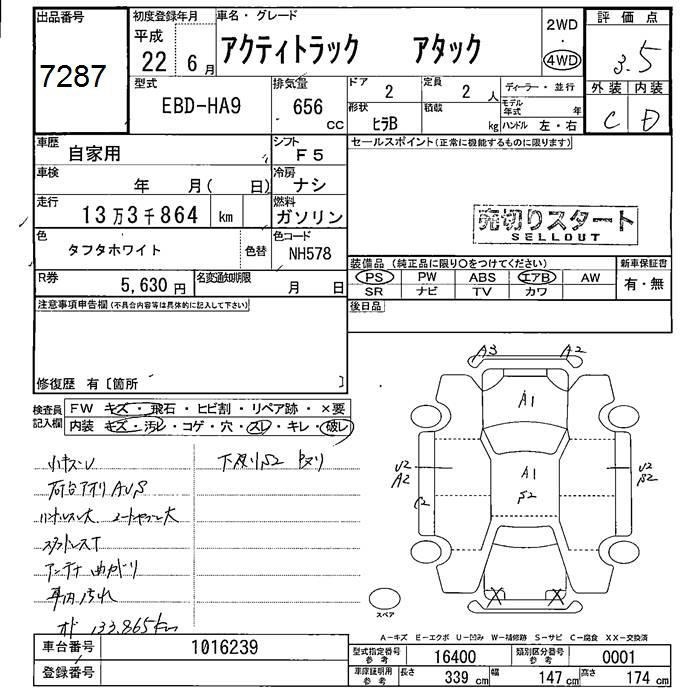 出品番号 初度登録年月 車名・グレード 評価点
7287
平成 22 年 6 月
アクティトラック アタック
2WD
・
4WD
3.5
型式 EBD-HA9
排気量 656 CC
ドア 2
定員 2 人
形状 ヒラB
積載 kg
ディーラー・並行
モデル年式 年
ハンドル 左・右
外装 内装
C D
車歴 自家用
シフト F5
セールスポイント(正常に機能するものに限ります)
車検 年 月( 日)
冷房 ナシ
走行 13万3千864 km
燃料 ガソリン
売切りスタート
SELLOUT
色 タフタホワイト 色替
色コード NH578
R券 5,630 円
名変通知期限 月 日
装備品(純正品に限り○をつけてください)
新車保証書
PS PW ABS エアB AW
SR ナビ TV カワ
有・無
注意事項申告欄(不具合内容等は具体的に記入して下さい)
後日品
修復歴 有〔箇所 〕
検査員記入欄
FW キズ・飛石・ヒビ割・リペア跡・×要
内装 キズ・汚レ・コゲ・穴・スレ・キレ・破レ
小キズU
下廻りS2
スタッドレスT
アンテナ曲がり
車内汚れ
133,865km
A3 A2
A1
A1
S2
U2
A2
C2
U2
S2
X X
スペア
A-キズ E-エクボ U-凹み W-補修跡 S-サビ C-腐食 XX-交換済
車台番号 1016239
型式指定番号 参考 16400
類別区分番号 参考 0001
登録番号
車庫証明用 参考 長さ 339 cm 幅 147 cm 高さ 174 cm